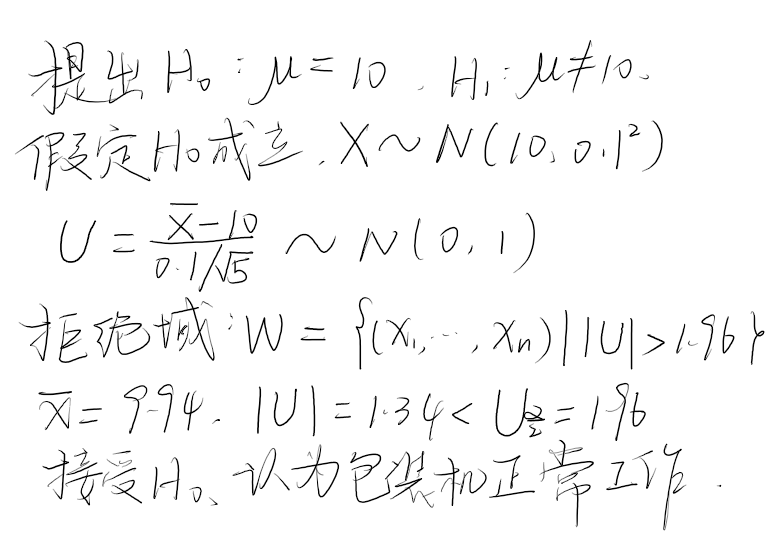 提出 H₀: μ = 10. H₁: μ ≠ 10.
假定H₀成立. X ~ N(10, 0.1²)
U = (X̄-10)/(0.1/√5) ~ N(0, 1)
拒绝域: W = {(x₁, ⋯, xₙ) | |U| > 1.96}
x̄ = 9.94. |U| = 1.34 < U_{α/2} = 1.96
接受H₀、认为包装机正常工作.